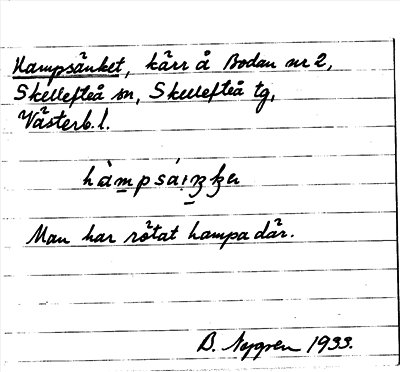 Hampsänket, kärr å Bodan nr 2,
Skellefteå sn, Skellefteå tg,
Västerb. l.
Man har rötat hampa där.
B. Nygren 1933.